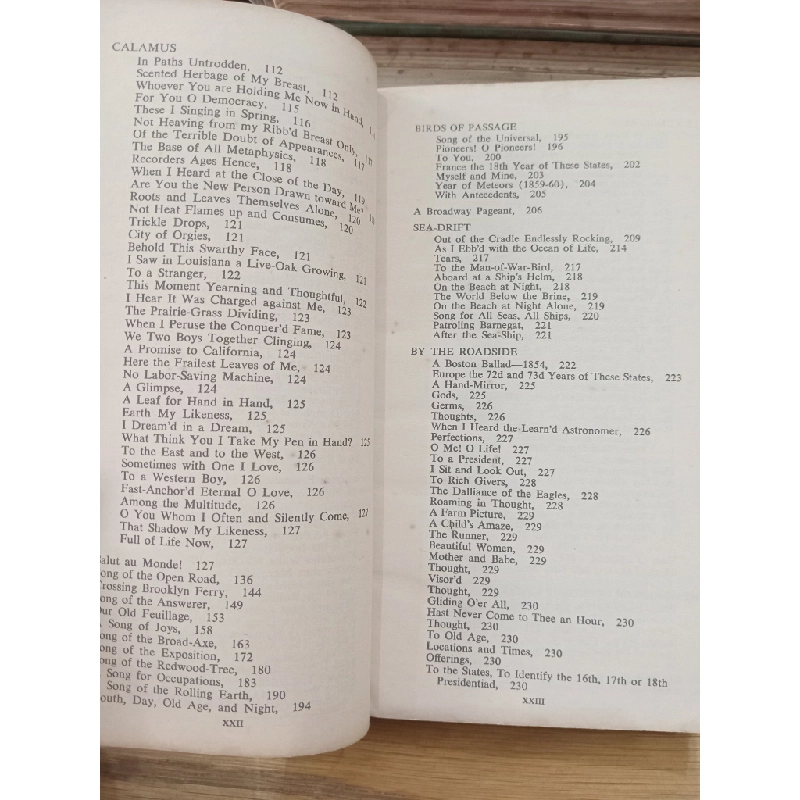 CALAMUS
In Paths Untrodden, 112
Scented Herbage of My Breast, 112
Whoever You are Holding Me Now in Hand,
For You O Democracy, 115
These I Singing in Spring, 116
Not Heaving from my Ribb'd Breast Only,
Of the Terrible Doubt of Appearances, 117
The Base of All Metaphysics, 118
Recorders Ages Hence, 118
When I Heard at the Close of the Day,
Are You the New Person Drawn toward Me?
Roots and Leaves Themselves Alone, 120
Not Heat Flames up and Consumes, 120
Trickle Drops, 121
City of Orgies, 121
Behold This Swarthy Face, 121
I Saw in Louisiana a Live-Oak Growing, 121
To a Stranger, 122
This Moment Yearning and Thoughtful, 122
I Hear It Was Charged against Me, 123
The Prairie-Grass Dividing, 123
When I Peruse the Conquer'd Fame, 123
We Two Boys Together Clinging, 124
A Promise to California, 124
Here the Frailest Leaves of Me, 124
No Labor-Saving Machine, 124
A Glimpse, 124
A Leaf for Hand in Hand, 125
Earth My Likeness, 125
I Dream'd in a Dream, 125
What Think You I Take My Pen in Hand? 125
To the East and to the West, 126
Sometimes with One I Love, 126
To a Western Boy, 126
Fast-Anchor'd Eternal O Love, 126
Among the Multitude, 126
O You Whom I Often and Silently Come, 127
That Shadow My Likeness, 127
Full of Life Now, 127
alut au Monde! 127
ong of the Open Road, 136
rossing Brooklyn Ferry, 144
ong of the Answerer, 149
ur Old Feuillage, 153
Song of Joys, 158
ong of the Broad-Axe, 163
ong of the Exposition, 172
ong of the Redwood-Tree, 180
Song for Occupations, 183
Song of the Rolling Earth, 190
outh, Day, Old Age, and Night, 194
XXII
BIRDS OF PASSAGE
Song of the Universal, 195
Pioneers! O Pioneers! 196
To You, 200
France the 18th Year of These States, 202
Myself and Mine, 203
Year of Meteors (1859-60), 204
With Antecedents, 205
A Broadway Pageant, 206
SEA-DRIFT
Out of the Cradle Endlessly Rocking, 209
As I Ebb'd with the Ocean of Life, 214
Tears, 217
To the Man-of-War-Bird, 217
Aboard at a Ship's Helm, 218
On the Beach at Night, 218
The World Below the Brine, 219
On the Beach at Night Alone, 219
Song for All Seas, All Ships, 220
Patroling Barnegat, 221
After the Sea-Ship, 221
BY THE ROADSIDE
A Boston Ballad—1854, 222
Europe the 72d and 73d Years of These States, 223
A Hand-Mirror, 225
Gods, 225
Germs, 226
Thoughts, 226
When I Heard the Learn'd Astronomer, 226
Perfections, 227
O Me! O Life! 227
To a President, 227
I Sit and Look Out, 227
To Rich Givers, 228
The Dalliance of the Eagles, 228
Roaming in Thought, 228
A Farm Picture, 229
A Child's Amaze, 229
The Runner, 229
Beautiful Women, 229
Mother and Babe, 229
Thought, 229
Visor'd 229
Thought, 229
Gliding O'er All, 230
Hast Never Come to Thee an Hour, 230
Thought, 230
To Old Age, 230
Locations and Times, 230
Offerings, 230
To the States, To Identify the 16th, 17th or 18th
Presidentiad, 230
XXIII